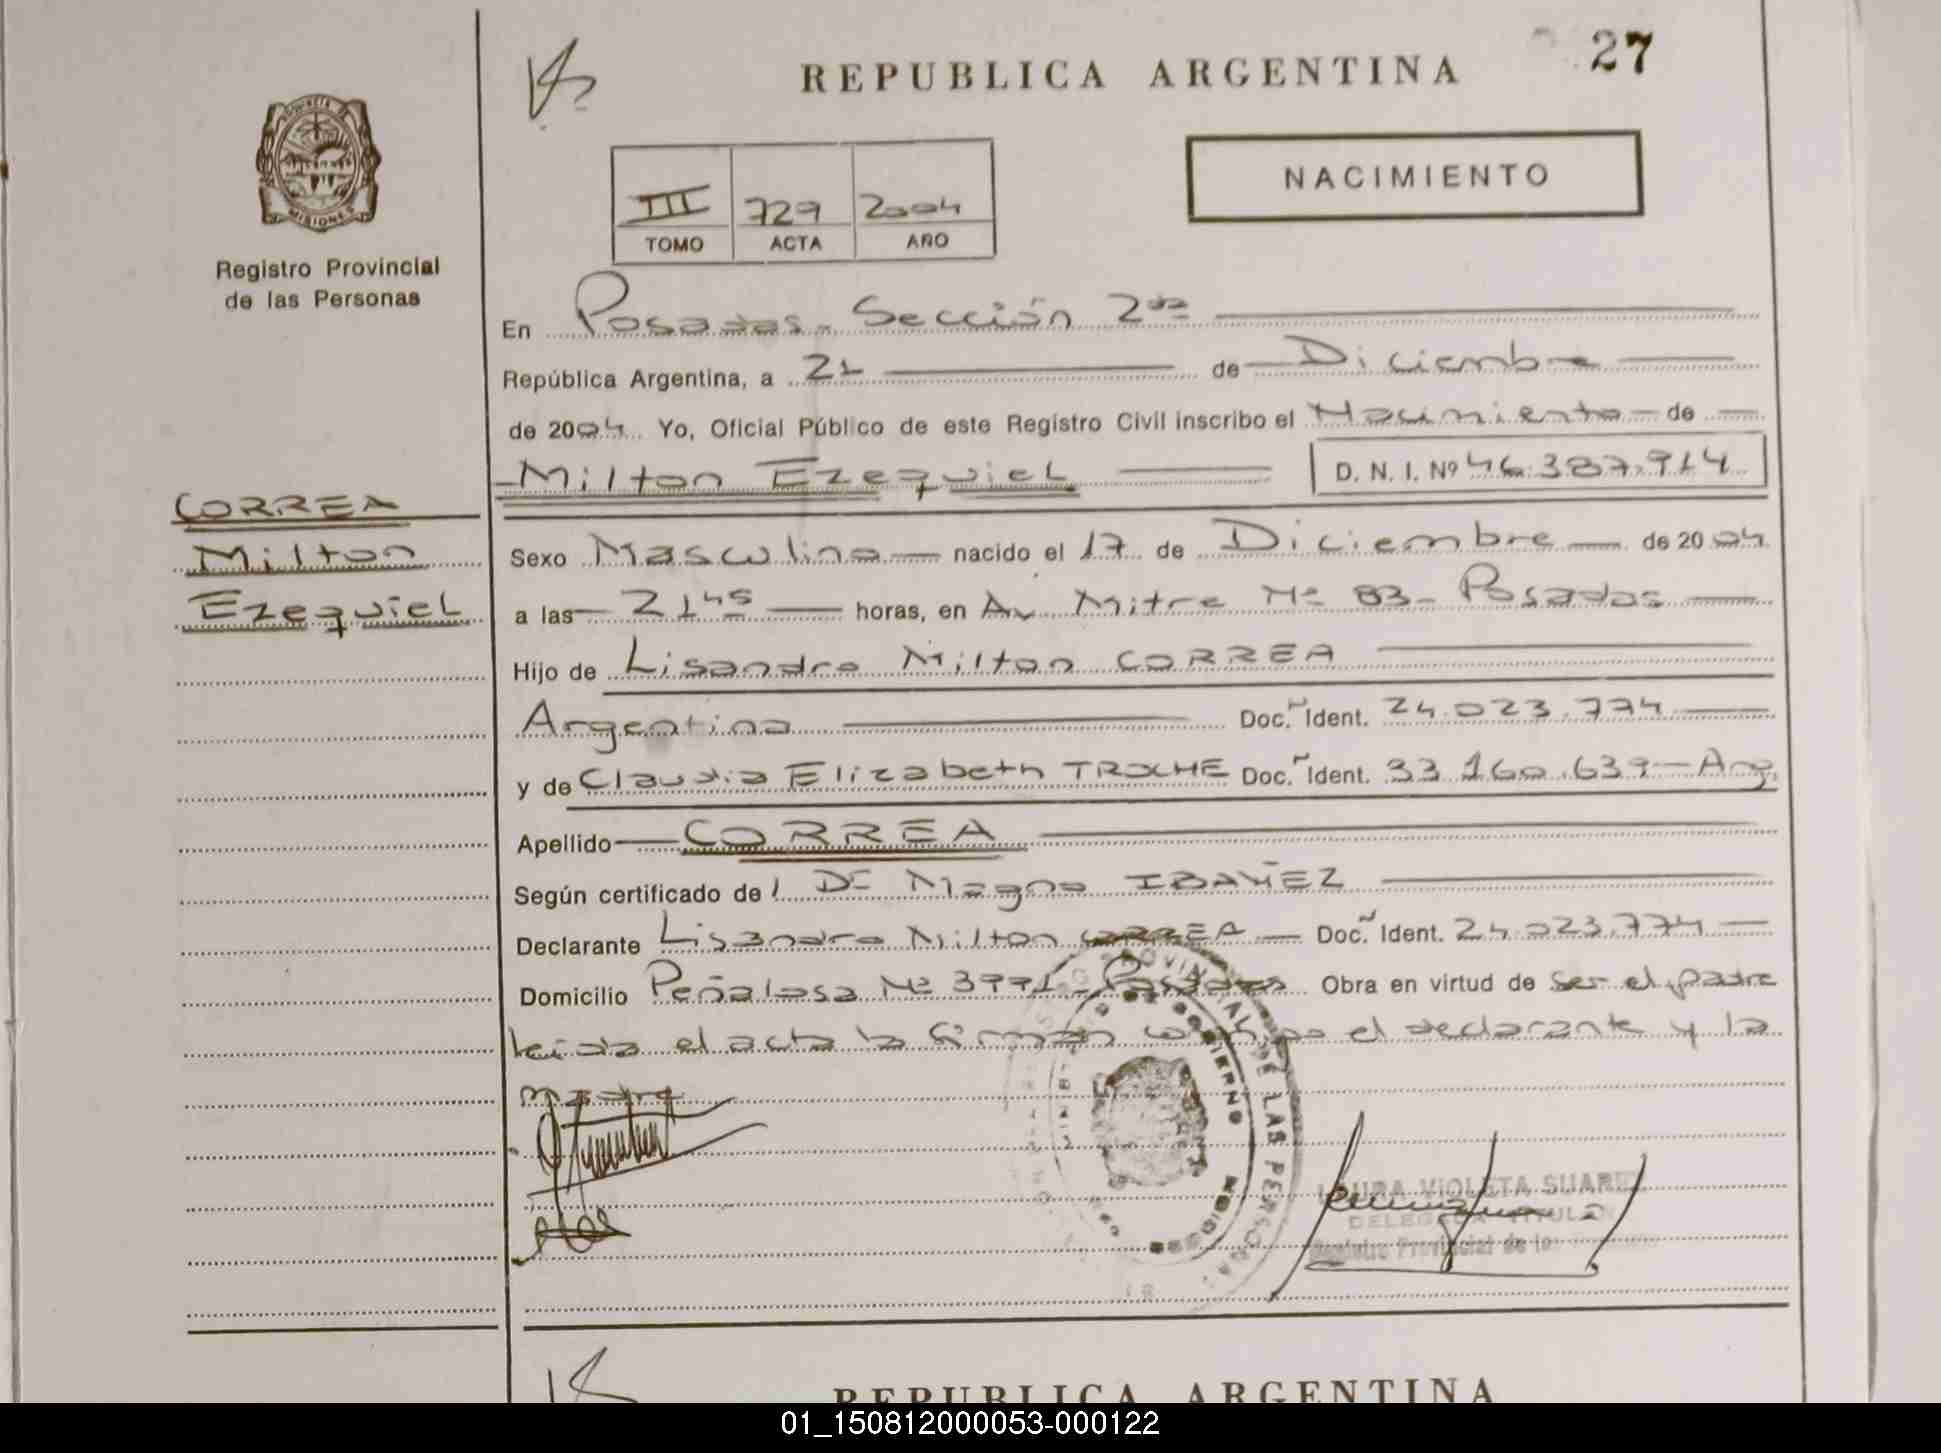 27
REPUBLICA ARGENTINA
NACIMIENTO
III 729 2004
TOMO ACTA AÑO
MISIONES
Registro Provincial
de las Personas
En Posadas - Sección 2da
República Argentina, a 21 de Diciembre
de 2004 Yo, Oficial Público de este Registro Civil inscribo el Nacimiento de
Milton Ezequiel D. N. I. Nº 46.387.914
CORREA
Milton
Ezequiel
Sexo Masculino nacido el 17 de Diciembre de 2004
a las 21 45 horas, en Av. Mitre Nº 83 - Posadas
Hijo de Lisandro Milton CORREA
Argentina Doc. Ident. 24.023.774
y de Claudia Elizabeth TROCHE Doc. Ident. 33.160.639 - Arg.
Apellido CORREA
Según certificado de l Dr Magno IBAÑEZ
Declarante Lisandro Milton CORREA Doc. Ident. 24.023.774
Domicilio Peñalosa Nº 3991 - Posadas Obra en virtud de ser el padre
leida el acta la firman conmigo el declarante y la
madre
LAURA VIOLETA SUAREZ
DELEGADA TITULAR
Registro Provincial de las
REPUBLICA ARGENTINA
01_150812000053-000122